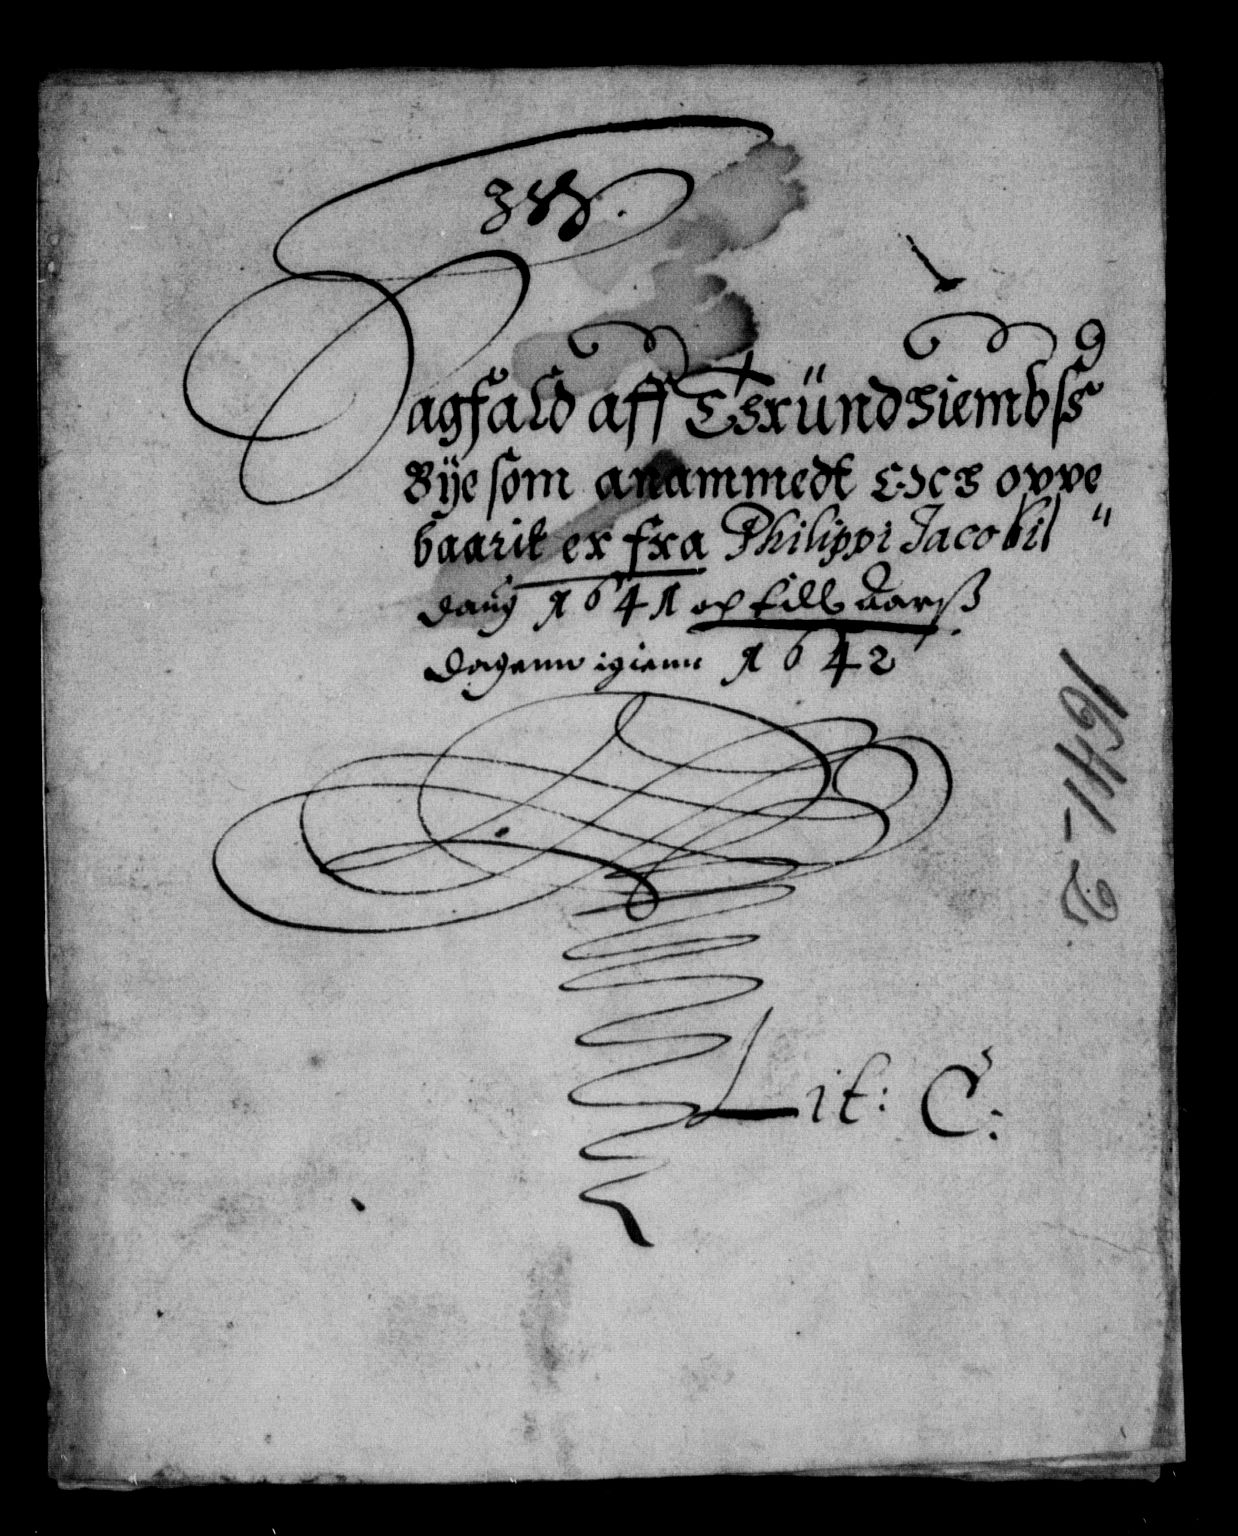 Sagfald aff Trundhiembss
Bÿe som anammedt och oppe
baarit er fra Philippi Jacobi
daug 1641 och till Aarß
dagenn igienn 1642
1641-2
Lit: C: